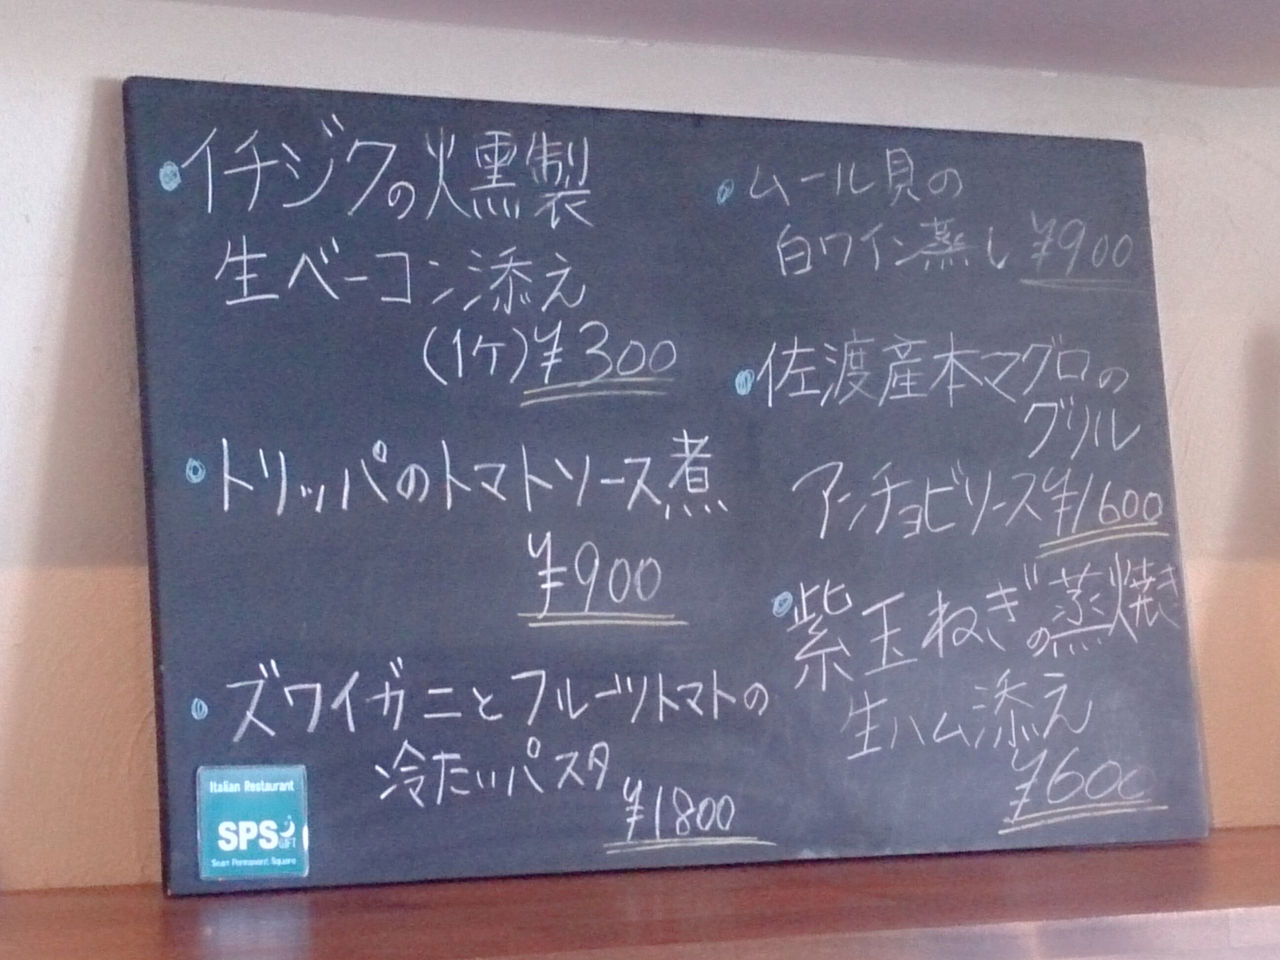 イチジクの燻製
生ベーコン添え
(1ケ)¥300
トリッパのトマトソース煮
¥900
ズワイガニとフルーツトマトの
冷たいパスタ
¥1800
ムール貝の
白ワイン蒸し ¥900
佐渡産本マグロの
グリル
アンチョビソース ¥1600
紫玉ねぎの蒸焼き
生ハム添え
¥600
Italian Restaurant
SPS
GIFT